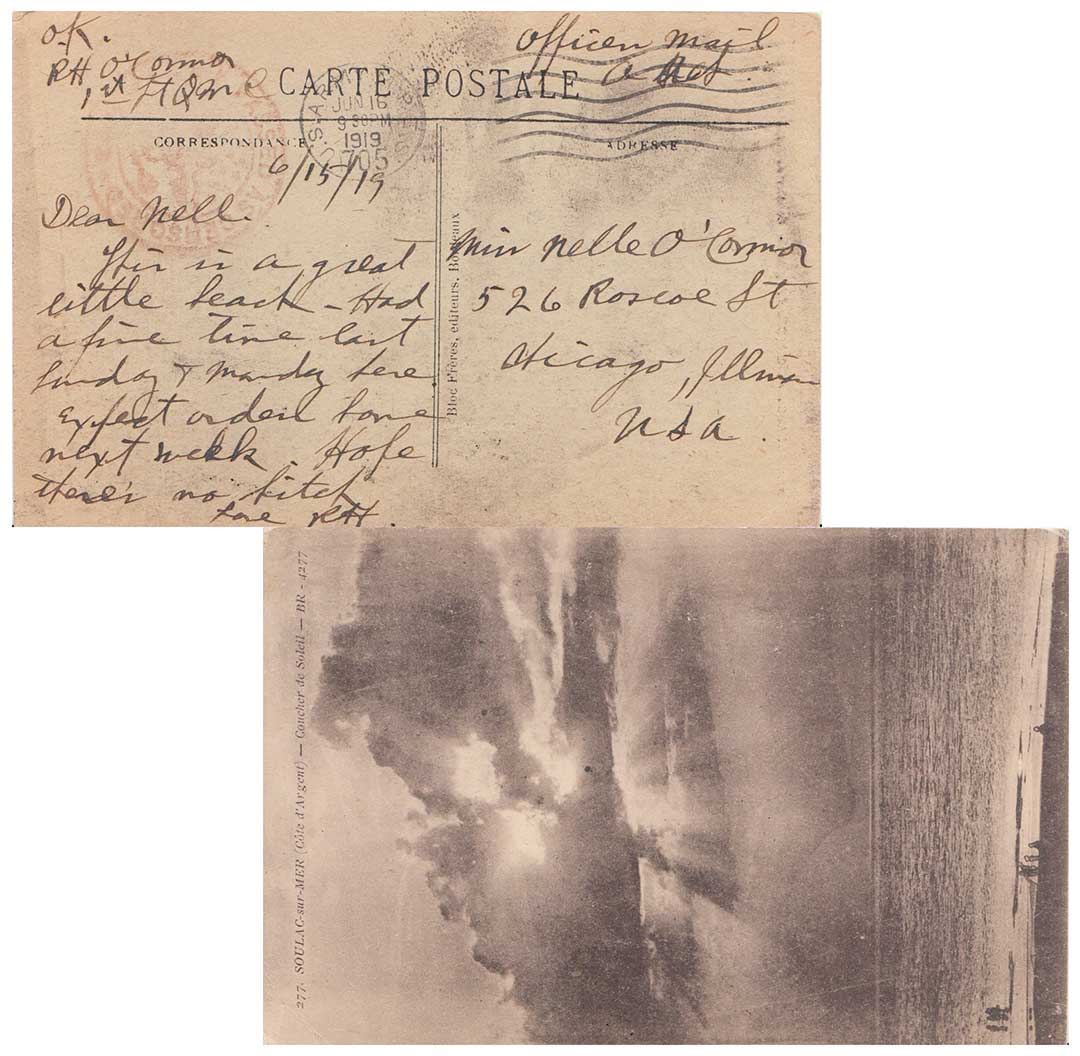 O.K.
RH O'Connor
1st Lt QMC
Officers Mail
CARTE POSTALE
JUN 16
9 30 PM
1919
705
CORRESPONDANCE
ADRESSE
6/15/19
Dear Nell.
This is a great
little beach - Had
a fine time last
Sunday & Monday here
Expect orders home
next week. Hope
there's no hitch
Love RH.
Miss Nelle O'Connor
526 Roscoe St
Chicago, Illinois
USA.
Bloc Frères, éditeurs, Bordeaux
277. SOULAC-sur-MER (Côte d'Argent) — Coucher de Soleil — BR - 4277